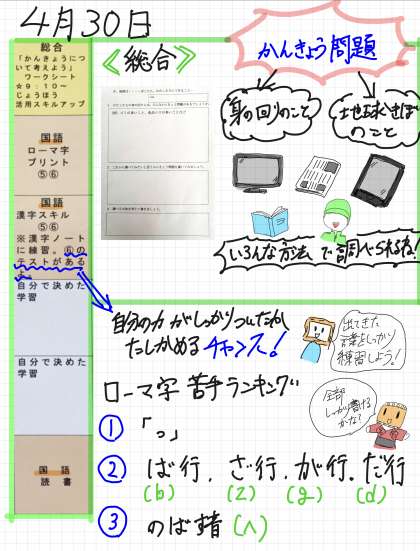 4月30日
総合
「かんきょうについて考えよう」
ワークシート
☆9:10~
じょうほう
活用スキルアップ
国語
ローマ字
プリント
⑤⑥
国語
漢字スキル
⑤⑥
※漢字ノート
に練習。⑥の
テストがある
よ。
自分で決めた
学習
自分で決めた
学習
国語
読書
《総合》
かんきょう問題
身の回りのこと
地球きぼ
のこと
いろんな方法で調べられるね!
自分の力がしっかりついたか
たしかめるチャンス!
出てきた
言葉をしっかり
練習しよう!
ローマ字 苦手ランキング
全部
しっかり書ける
かな?
① 「っ」
② ば行、ざ行、が行、だ行
(b) (z) (g) (d)
③ のばす音(^)